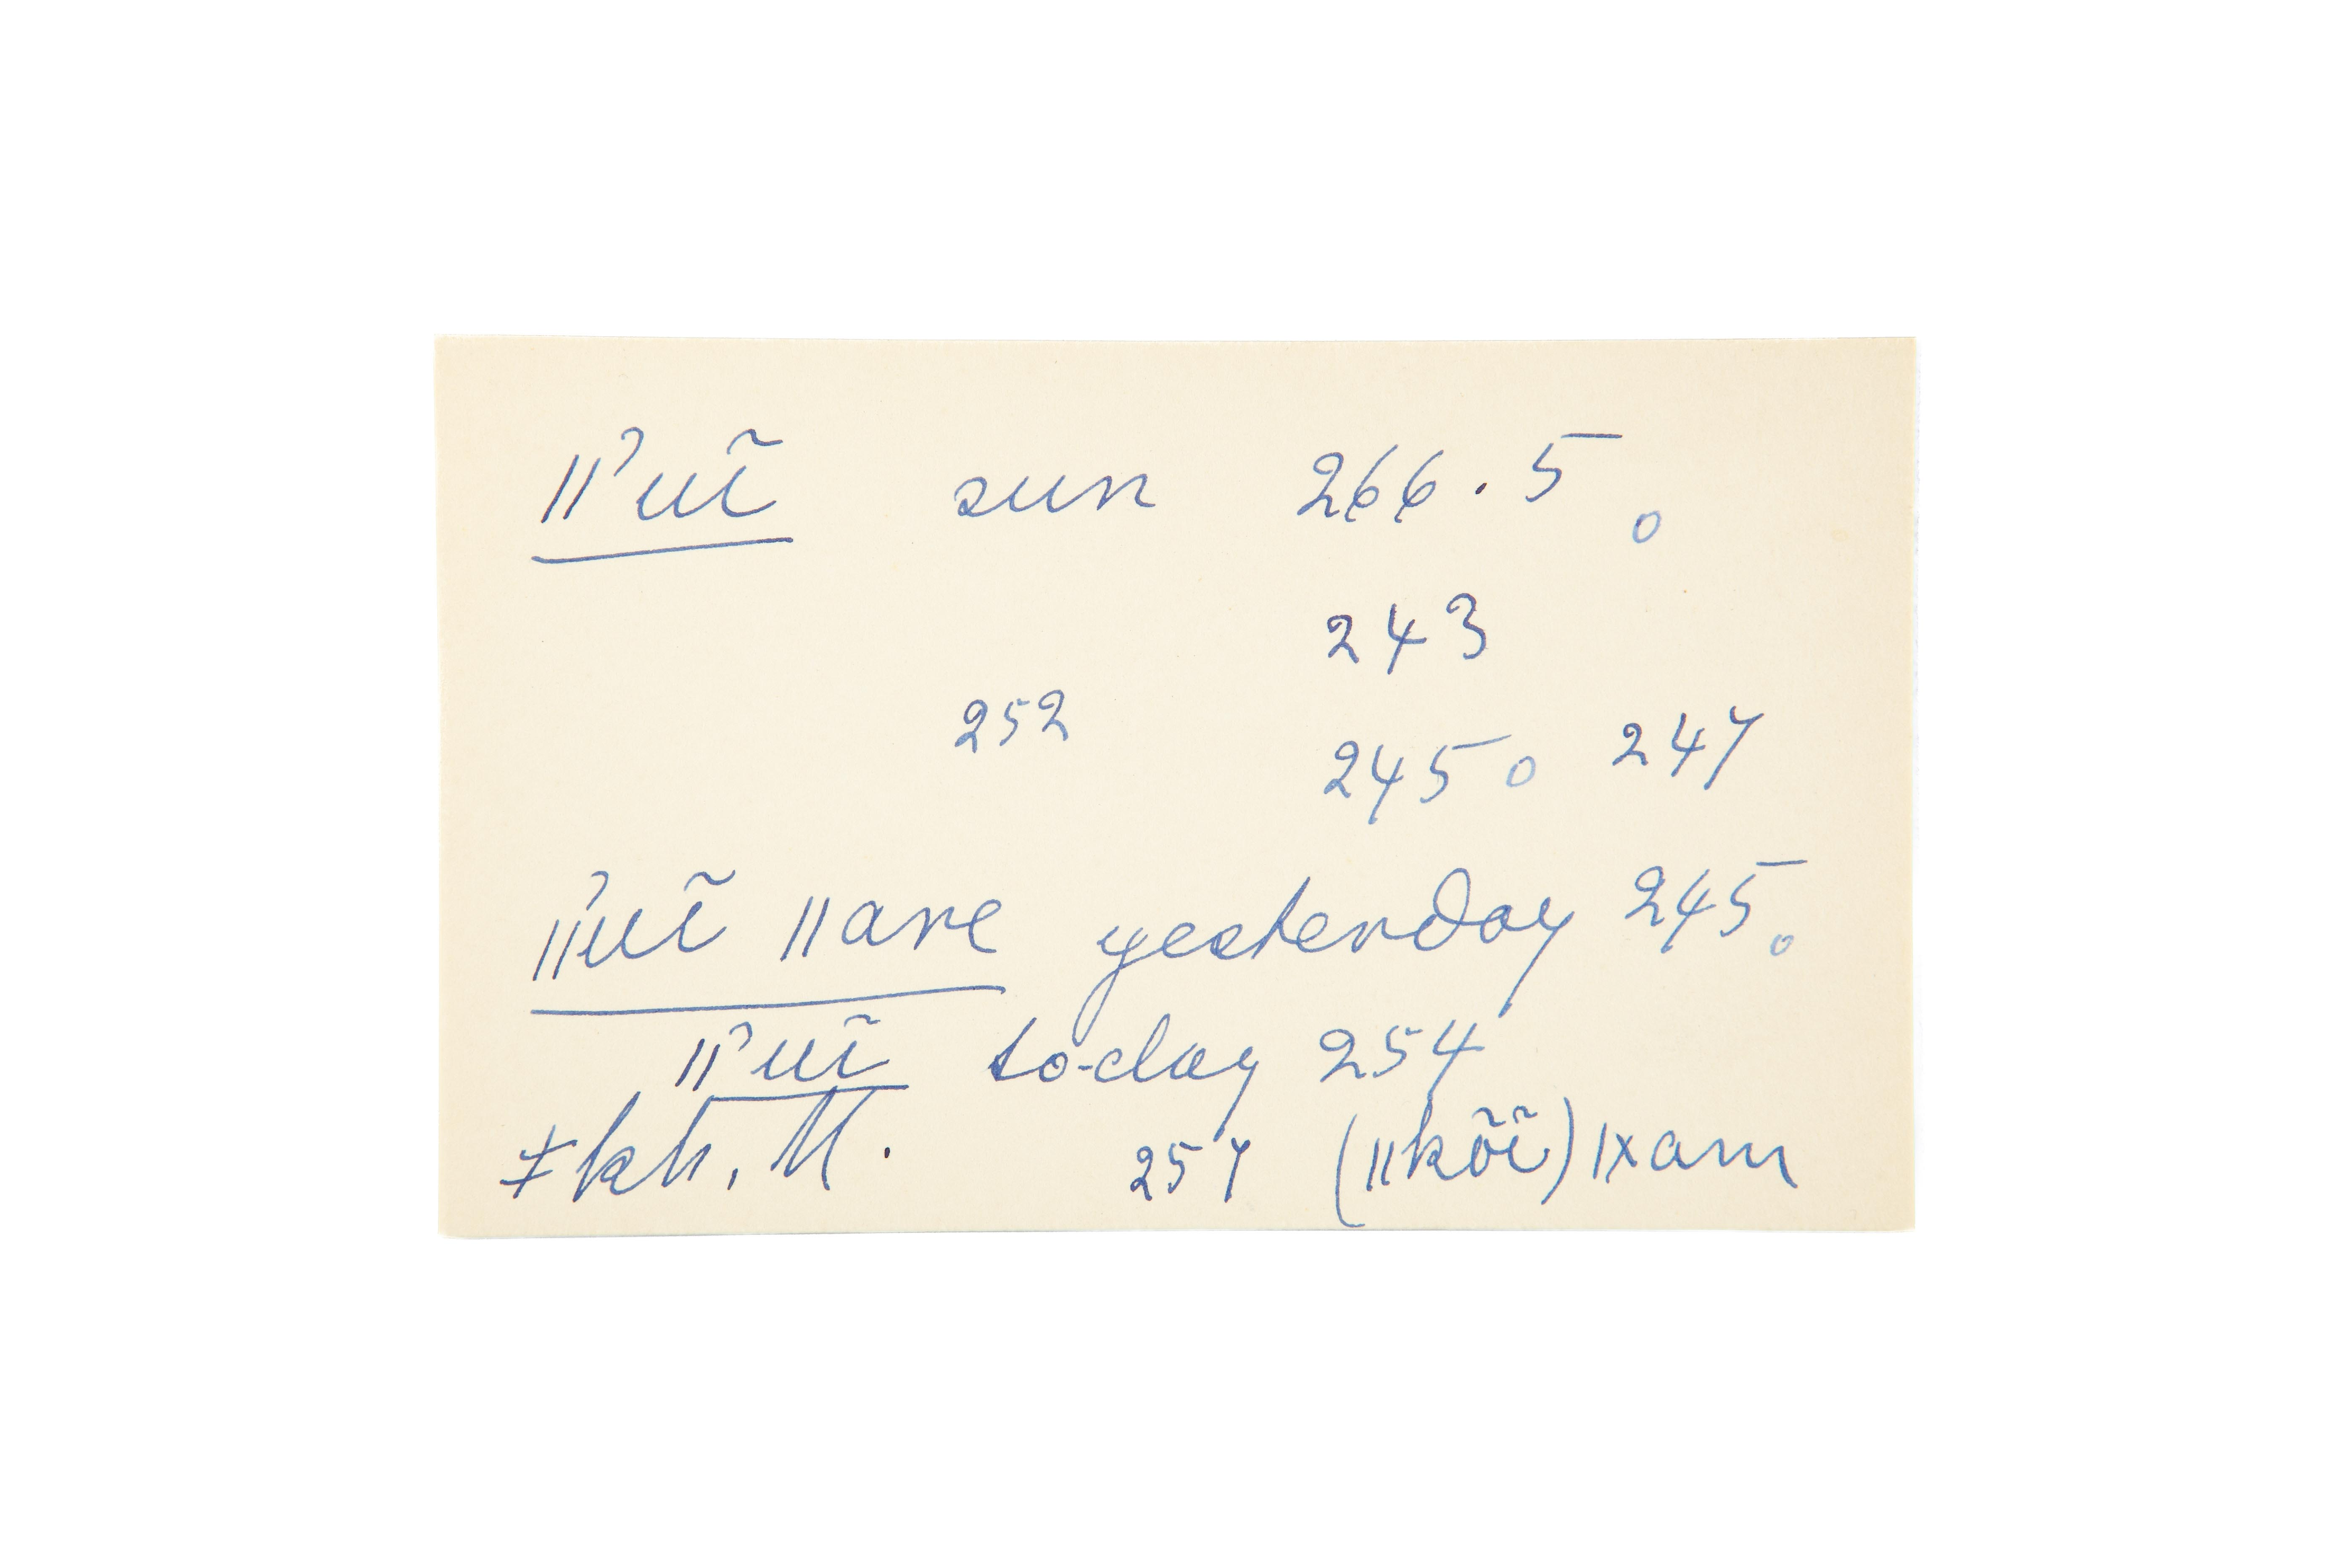 ǁʼuĩ sun 266.5 o
243
252 245 o 247
ǁʼuĩ ǁare yesterday 245 o
ǁʼuĩ to-day 254
ǂkh. M. 257 (ǁkõĩ) ǀxam